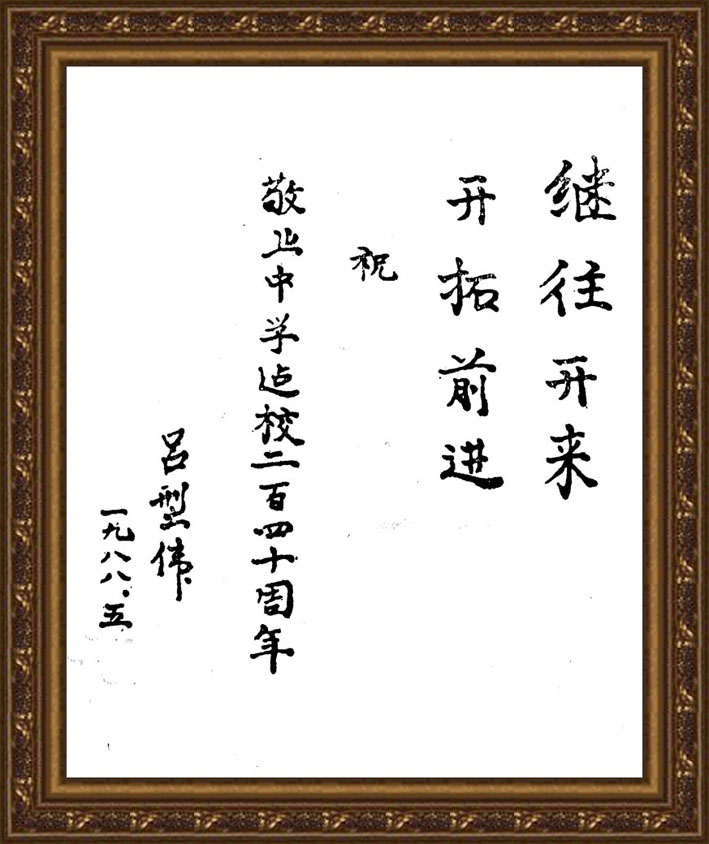 继往开来
开拓前进
祝
敬业中学迠校二百四十周年
吕型伟
一九八八.五